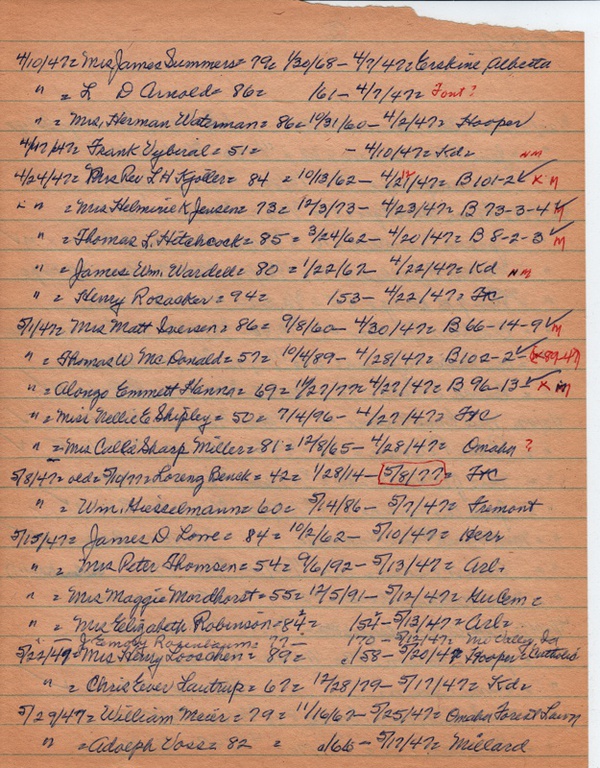 4/10/47= Mrs James Summers= 79= 1/30/68- 4/7/47= Erskine Alberta
" = L D Arnold= 86= 161- 4/7/47= Font?
" = Mrs, Herman Waterman= 86= 10/31/60- 4/2/47= Hooper
4/17/47= Frank Vyberal= 51= - 4/10/47= Kd= NM
4/24/47= Mrs Rev L H Kjoller= 84 = 10/13/62- 4/21/47= B 101-2 ✓ x M
" " = Mrs Helmine K Jensen= 73= 12/3/73- 4/23/47= B 73-3-4 ✓ M
" = Thomas L. Hitchcock= 85= 3/24/62- 4/20/47= B 8-2-3 ✓ M
" = James Wm. Wardell= 80 = 1/22/67- 4/22/47= Kd NM
" = Henry Rosacker= 94= 153- 4/22/47=
5/1/47= Mrs Matt Iversen= 86= 9/8/60- 4/30/47= B 66-14-9 ✓ M
" = Thomas W McDonald= 57= 10/4/89- 4/28/47= B 102-2 - x 89-47
" = Alonzo Emmett Hanna= 69= 11/27/77= 4/27/47= B 96-13 ✓ x M
" = Miss Nellie E Shipley= 50= 7/4/96- 4/27/47=
" = Mrs Callie Sharp Miller= 81= 12/8/65- 4/28/47= Omaha ?
5/8/47= oed= 5/19/77= Loreng Benck= 42= 1/28/14- 5/8/77=
" = Wm. Giesselmann= 60= 5/14/86- 5/7/47= Fremont
5/15/47= James D Lowe= 84= 10/2/62- 5/10/47= Herr
" = Mrs Peter Thomsen= 54= 9/6/92- 5/13/47= Arl.
" = Mrs Maggie Mordhorst= 55= 12/5/91- 5/12/47=
" = Mrs Elizabeth Robinson= 84= 154- 5/13/47= Arl=
" - J. Emory Rosenbaum= 77- 170- 5/12/47=
5/22/47= Mrs Henry Looschen= 89= 158- 5/20/47= Hooper= Catholic
" = Chris Ever Lautrup= 67= 12/28/79- 5/17/47= Kd=
5/29/47= William Meier= 79= 11/16/67- 5/25/47= Omaha Forest Lawn
" = Adolph Voss= 82 = /66- 5/17/47= Millard